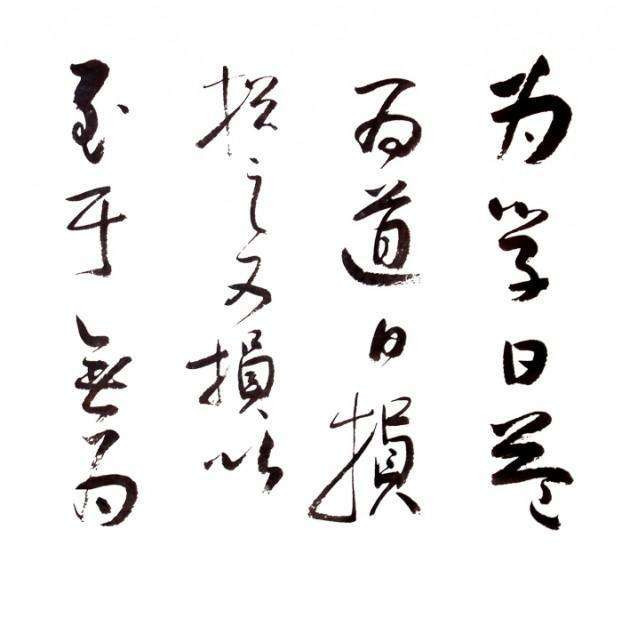 为学日益
为道日損
损之又損以
至于無为